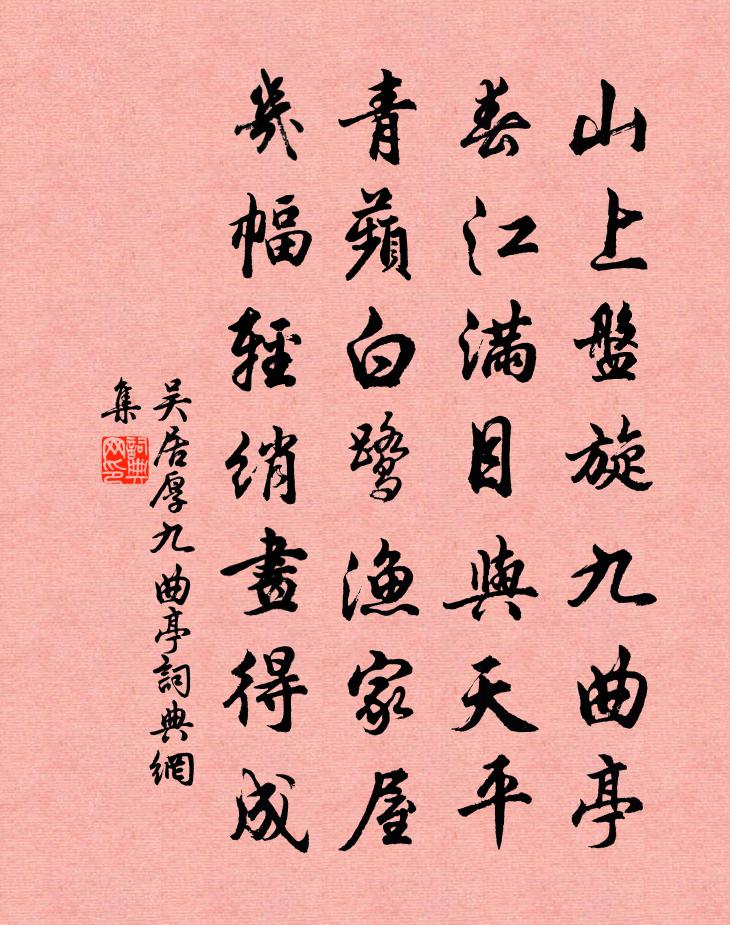 山上盤旋九曲亭
春江滿目與天平
青蘋白鷺漁家屋
幾幅輕綃畫得成
吴居厚九曲亭詞典網
集
詞典
网印